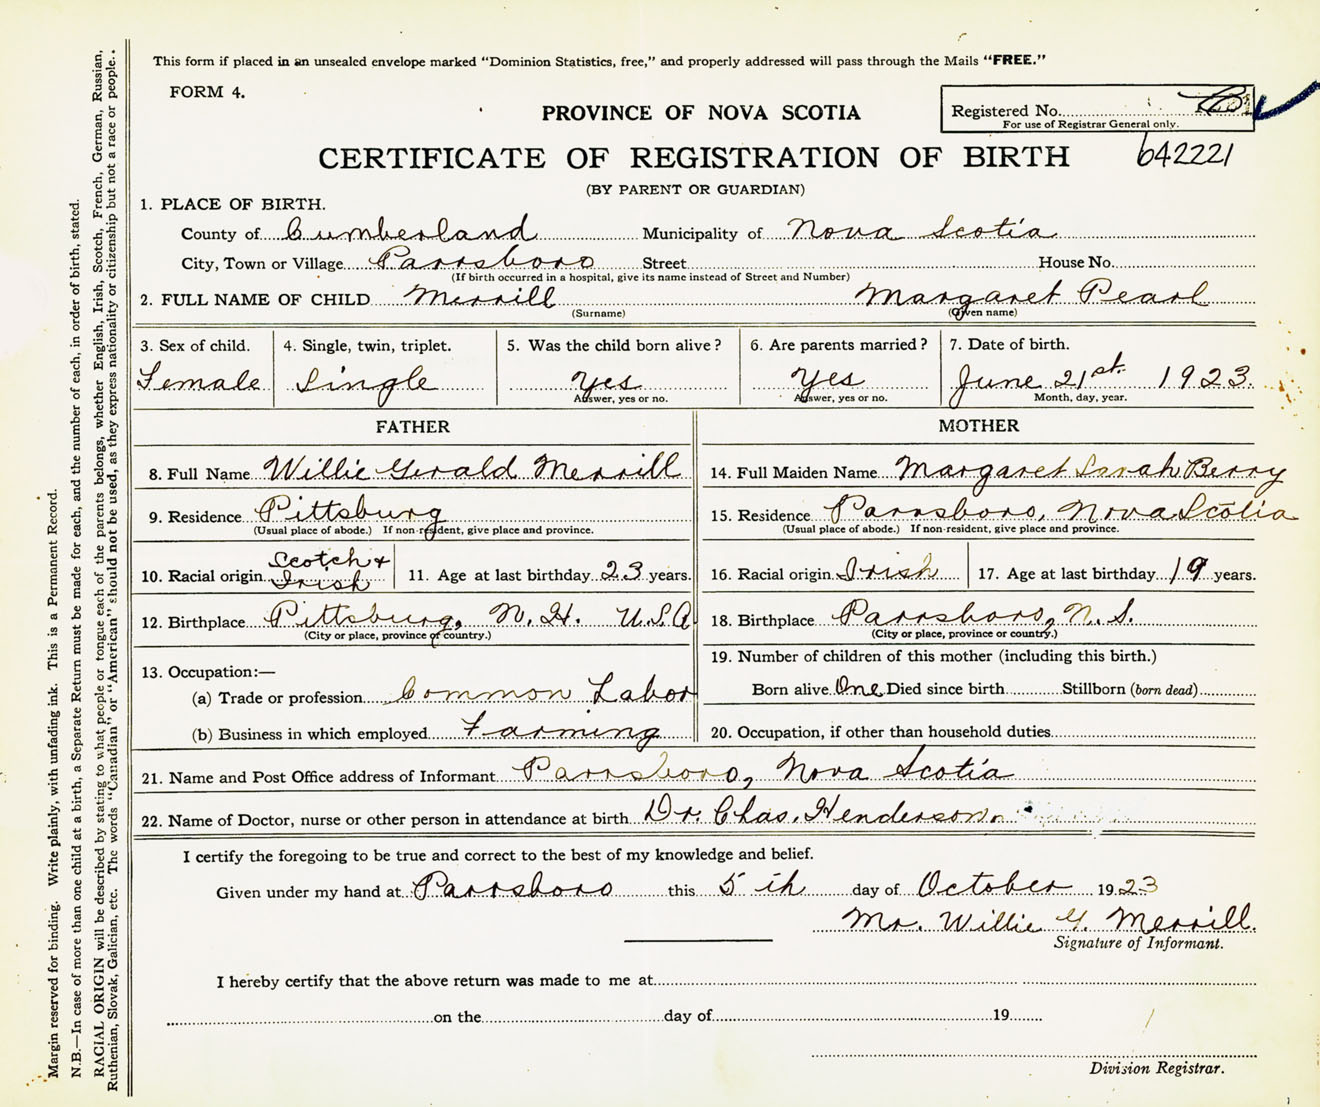 This form if placed in an unsealed envelope marked "Dominion Statistics, free," and properly addressed will pass through the Mails "FREE."
FORM 4.
PROVINCE OF NOVA SCOTIA
Registered No.
For use of Registrar General only.
CERTIFICATE OF REGISTRATION OF BIRTH
642221
(BY PARENT OR GUARDIAN)
1. PLACE OF BIRTH.
County of Cumberland Municipality of Nova Scotia
City, Town or Village Parrsboro Street House No.
(If birth occurred in a hospital, give its name instead of Street and Number)
2. FULL NAME OF CHILD Merrill Margaret Pearl
(Surname) (Given name)
3. Sex of child. 4. Single, twin, triplet. 5. Was the child born alive? 6. Are parents married? 7. Date of birth.
Female Single Yes Yes June 21st. 1923.
Answer, yes or no. Answer, yes or no. Month, day, year.
FATHER MOTHER
8. Full Name Willie Gerald Merrill 14. Full Maiden Name Margaret Sarah Berry
9. Residence Pittsburg 15. Residence Parrsboro, Nova Scotia
(Usual place of abode.) If non-resident, give place and province. (Usual place of abode.) If non-resident, give place and province.
10. Racial origin Scotch + Irish 11. Age at last birthday 23 years. 16. Racial origin Irish 17. Age at last birthday 19 years.
12. Birthplace Pittsburg, N. H. U.S.A 18. Birthplace Parrsboro, N. S.
(City or place, province or country.) (City or place, province or country.)
13. Occupation:— 19. Number of children of this mother (including this birth.)
(a) Trade or profession Common Labor Born alive One Died since birth Stillborn (born dead)
(b) Business in which employed Farming 20. Occupation, if other than household duties
21. Name and Post Office address of Informant Parrsboro, Nova Scotia
22. Name of Doctor, nurse or other person in attendance at birth Dr. Chas. Henderson.
I certify the foregoing to be true and correct to the best of my knowledge and belief.
Given under my hand at Parrsboro this 5 th day of October 1923
Mr. Willie G. Merrill.
Signature of Informant.
I hereby certify that the above return was made to me at
on the day of 19
Division Registrar.
Margin reserved for binding. Write plainly, with unfading ink. This is a Permanent Record.
N.B.—In case of more than one child at a birth, a Separate Return must be made for each, and the number of each, in order of birth, stated.
RACIAL ORIGIN will be described by stating to what people or tongue each of the parents belongs, whether English, Irish, Scotch, French, German, Russian,
Ruthenian, Slovak, Galician, etc. The words "Canadian" or "American" should not be used, as they express nationality or citizenship but not a race or people.